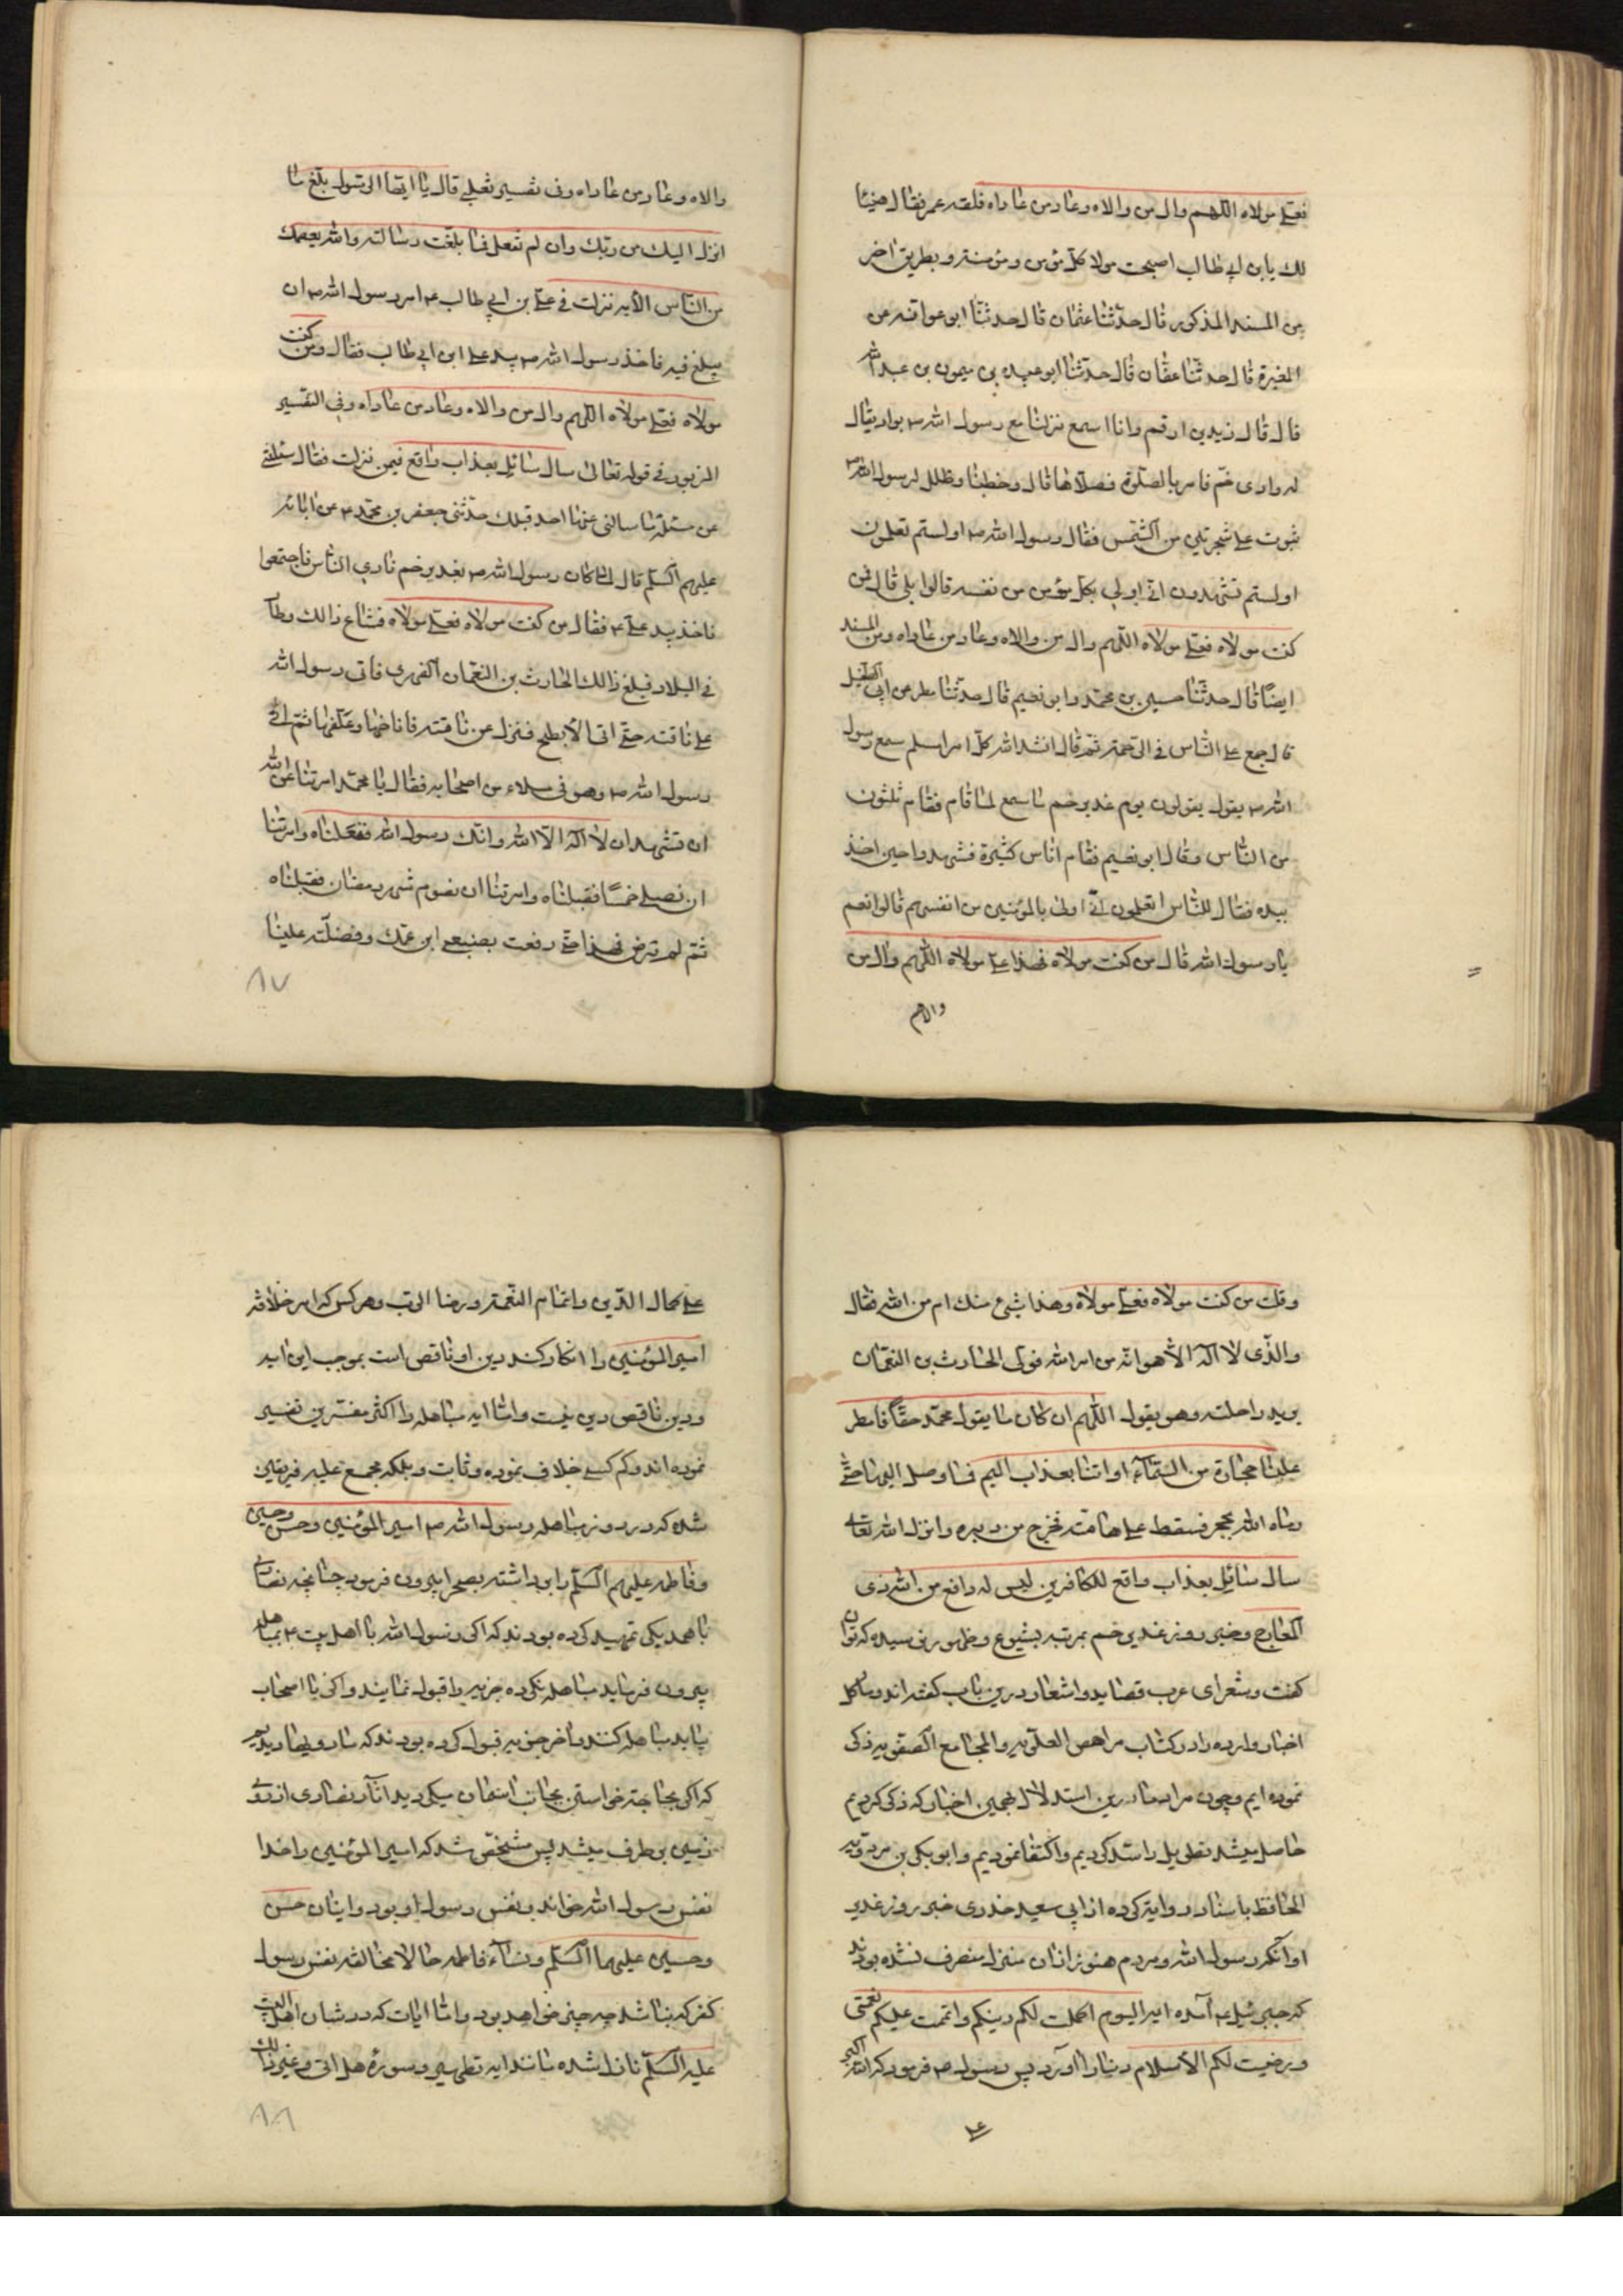 فعلي مولاه اللهم وال من والاه وعاد من عاداه فلقيه عمر فقال هنيئا
لك يابن ابي طالب اصبحت مولا كل مؤمن ومؤمنة وبطريق اخر
من المسند المذكور قال حدثنا عثمان قال حدثنا ابو عوانه عن
المغيرة قال حدثنا عفان قال حدثنا ابو عبيده بن ميمون بن عبد الله
قال قال زيد بن ارقم وانا اسمع نزلنا مع رسول الله ص بواد يقال
له وادى خم فامر بالصلوة فصلاها قال وخطبنا وظلل لرسول الله ص
بثوب على شجرة من الشمس فقال رسول الله ص اولستم تعلمون
اولستم تشهدون اني اولي بكل مؤمن من نفسه قالوا بلى قال فمن
كنت مولاه فعلي مولاه اللهم وال من والاه وعاد من عاداه ومن المسند
ايضا قال حدثنا حسين بن محمد وابو نعيم قال حدثنا مطر عن ابي الطفيل
قال جمع علي الناس في الرحبة ثم قال انشد الله كل امرا مسلم سمع رسول
الله ص يقول يقولون يوم غدير خم ما سمع لما قام فقام ثلثون
من الناس وقال ابو نعيم فقام اناس كثيرة فشهدوا حين اخذ
بيده فقال للناس اتعلمون اني اولى بالمؤمنين من انفسهم قالوا نعم
يا رسول الله قال من كنت مولاه فهذا علي مولاه اللهم وال من
والاه
والاه وعاد من عاداه وفي تفسير ثعلبي قال يا ايها الرسول بلغ ما
انزل اليك من ربك وان لم تفعل فما بلغت رسالته والله يعصمك
من الناس الآيه نزلت في علي بن ابي طالب ع امر رسول الله ص ان
يبلغ فيه فاخذ رسول الله ص بيد علي ابن ابي طالب فقال من كنت
مولاه فعلي مولاه اللهم وال من والاه وعاد من عاداه وفي التفسير
المزبور في قوله تعالى سال سائل بعذاب واقع فيمن نزلت فقال سئلتني
عن مسئلة ما سالني عنها احد قبلك حدثني جعفر بن محمد ع عن ابائه
عليهم السلم قال لما كان رسول الله ص بغدير خم نادي الناس فاجتمعوا
فاخذ بيد علي ع فقال من كنت مولاه فعلي مولاه فشاع ذالك وطار
في البلاد فبلغ ذالك الحارث بن النعمان الفهري فاتى رسول الله
على ناقته حتى اتى الأبطح فنزل عن ناقته فاناخها وعقلها ثم اتى
رسول الله ص وهو في ملاء من اصحابه فقال يا محمد امرتنا عن الله
ان نشهد ان لا اله الا الله وانك رسول الله فقبلناه وامرتنا
ان نصلي خمسا فقبلناه وامرتنا ان نصوم شهر رمضان فقبلناه
ثم لم ترض بهذا حتى رفعت بضبعي ابن عمك وفضلته علينا
٨٧
وقلت من كنت مولاه فعلي مولاه وهذا شيء منك ام من الله فقال
والذى لا اله الا هو انه من امر الله فولى الحارث بن النعمان
يريد راحلته وهو يقول اللهم ان كان ما يقول محمد حقا فامطر
علينا حجارة من السماء او ائتنا بعذاب اليم فما وصل اليها حتى
رماه الله بحجر فسقط على هامته فخرج من دبره وانزل الله تعالى
سال سائل بعذاب واقع للكافرين ليس له دافع من الله ذى
المعارج وخبر روز غدير خم بمرتبه بشيوع وظهور رسيده كه توان
كفت وشعراى عرب قصايد واشعار درين باب كفته اند وما كل
اخبار وارده را در كتاب مراهص العلويه والمجامع الصفويه ذكر
نموده ايم وچون مراد ما درين استدلال بهمين اخبار كه ذكر كرديم
حاصل ميشد تطويل را سد كرديم واكتفا نموديم وابو بكر بن مردويه
الحافظ باسناد روايت كرده از ابي سعيد خدرى خبر روز غدير
او آنكه رسول الله ومردم هنوز از ان منزل منصرف نشده بودند
كه جبرئيل ع آمده ايه اليوم اكملت لكم دينكم واتممت عليكم نعمتى
ورضيت لكم الأسلام دينا را اورد پس رسول ص فرمود كه الله اكبر
على
على كمال الدين واتمام النعمة ورضا الرب وهر كس كه امر خلافة
امير المؤمنين را انكار كند دين او ناقص است بموجب اين ايه
ودين ناقص دين نيست واما ايه مباهله را اكثر مفسرين تفسير
نموده اند وكم كسے خلاف نموده وثابت وبلكه مجمع عليه فريقين
شده كه در روز مباهله رسول الله ص امير المؤمنين وحسن وحسين
وفاطمه عليهم السلم را بر داشته بصحرا بيرون فرمود چنانچه نصارى
با همديكر تمهيد كرده بودند كه اكر رسول الله با اهل بيت ع بمباهله
بيرون فرمايد مباهله نكرده جزيه را قبول نمايند واكر با اصحاب
بيايد مباهله كنند واخر جزيه قبول كرده بودند كه ما رويها ديديم
كه اكر بحاجة خواستن بجانب اسمان ميكرديد اثار نصارى از روى
زمين بر طرف ميشد پس مشخص شد كه امير المؤمنين را خدا
نفس رسول الله خواند ونفس رسول او بود وابنان حسن
وحسين عليهما السلم ونساء فاطمه حالا مخالفه نفس رسول
كفر كه نباشد چه چيز خواهد بود واما ايات كه در شان اهل البيت
عليه السلم نازل شده مانند ايه تطهير وسوره هل اتى وغير ذالك
٨٨